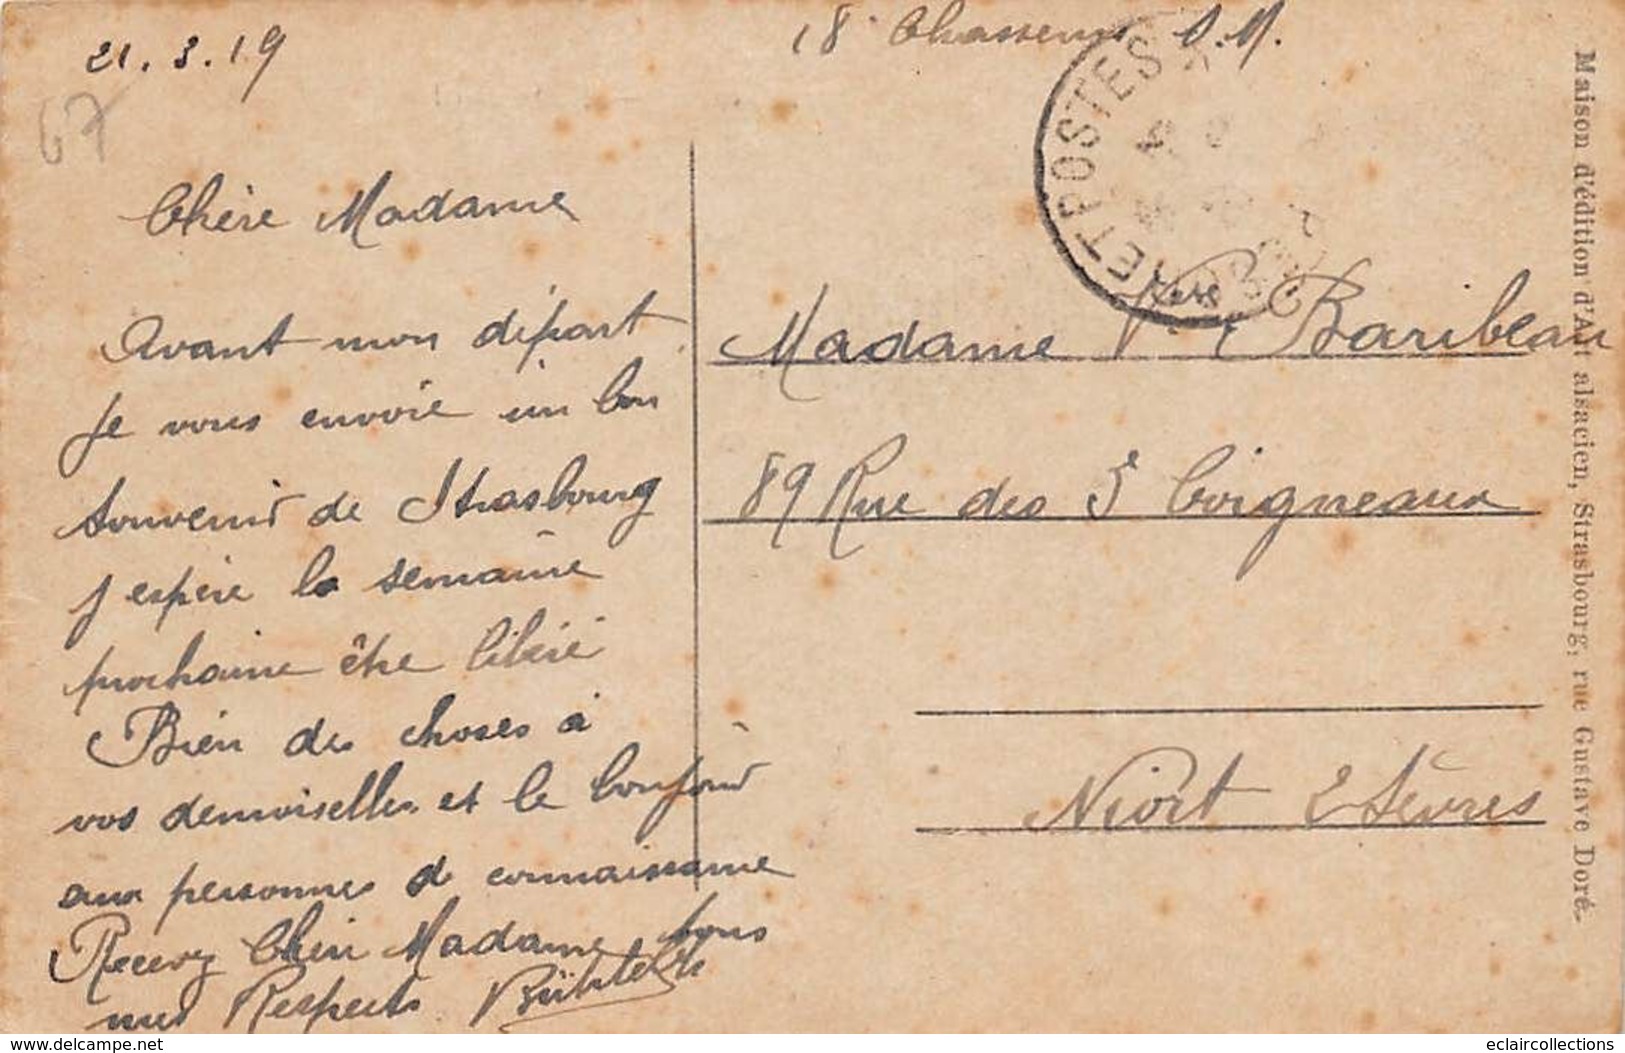 21.3.19
67
18e Chasseurs S.M.
Chère Madame
Avant mon départ
je vous envoie un bon
souvenir de Strasbourg
j espère la semaine
prochaine être libéré
Bien des choses à
vos demoiselles et le bonjour
aux personnes de connaissance
Recevez Chère Madame tous
mes Respects
ET POSTES
Madame Vve Baribeau
89 Rue des 3 Coigneaux
Niort 2 Sèvres
Maison d'édition d'Art alsacien, Strasbourg, rue Gustave Doré.
www.delcampe.net
eclaircollections